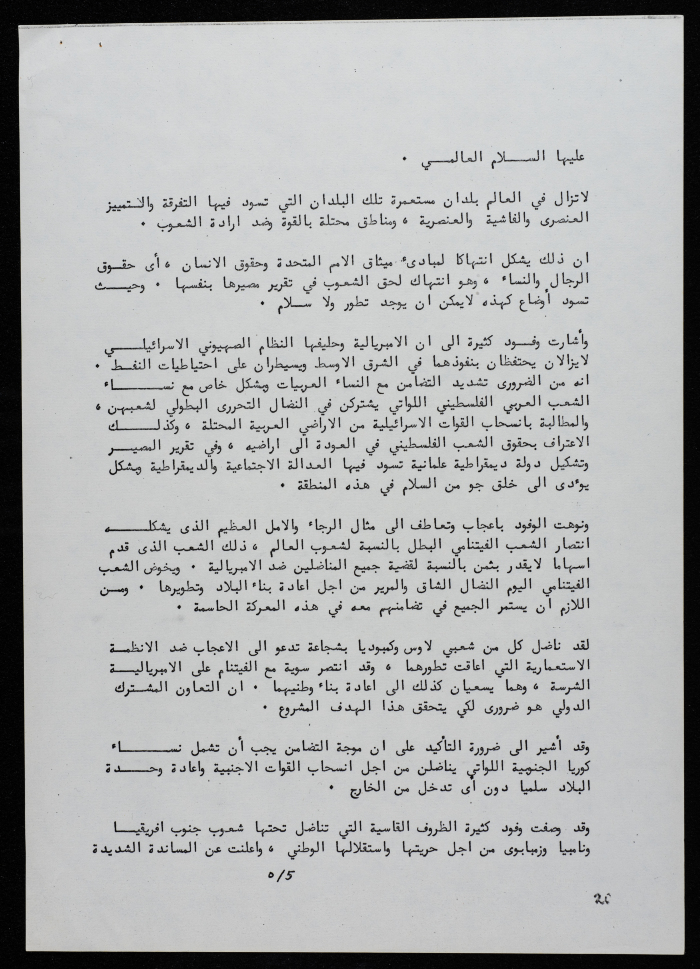 عليها السلام العالمي .
لاتزال في العالم بلدان مستعمرة تلك البلدان التي تسود فيها التفرقة والتمييز
العنصرى والفاشية والعنصرية ، ومناطق محتلة بالقوة وضد ارادة الشعوب .
ان ذلك يشكل انتهاكا لمبادئ ميثاق الامم المتحدة وحقوق الانسان ، أى حقوق
الرجال والنساء ، وهو انتهاك لحق الشعوب في تقرير مصيرها بنفسها . وحيث
تسود أوضاع كهذه لايمكن ان يوجد تطور ولا سلام .
وأشارت وفود كثيرة الى ان الامبريالية وحليفها النظام الصهيوني الاسرائيلي
لايزالان يحتفظان بنفوذهما في الشرق الاوسط ويسيطران على احتياطيات النفط .
انه من الضرورى تشديد التضامن مع النساء العربيات وبشكل خاص مع نساء
الشعب العربي الفلسطيني اللواتي يشتركن في النضال التحررى البطولي لشعبهن ،
والمطالبة بانسحاب القوات الاسرائيلية من الاراضي العربية المحتلة ، وكذلك
الاعتراف بحقوق الشعب الفلسطيني في العودة الى اراضيه ، وفي تقرير المصير
وتشكيل دولة ديمقراطية علمانية تسود فيها العدالة الاجتماعية والديمقراطية وبشكل
يؤدى الى خلق جو من السلام في هذه المنطقة .
ونوهت الوفود باعجاب وتعاطف الى مثال الرجاء والامل العظيم الذى يشكله
انتصار الشعب الفيتنامي البطل بالنسبة لشعوب العالم ، ذلك الشعب الذى قدم
اسهاما لايقدر بثمن بالنسبة لقضية جميع المناضلين ضد الامبريالية . ويخوض الشعب
الفيتنامي اليوم النضال الشاق والمرير من اجل اعادة بناء البلاد وتطويرها . ومن
اللازم ان يستمر الجميع في تضامنهم معه في هذه المعركة الحاسمة .
لقد ناضل كل من شعبي لاوس وكمبوديا بشجاعة تدعو الى الاعجاب ضد الانظمة
الاستعمارية التي اعاقت تطورهما ، وقد انتصر سوية مع الفيتنام على الامبريالية
الشرسة ، وهما يسعيان كذلك الى اعادة بناء وطنيهما . ان التعاون المشترك
الدولي هو ضرورى لكي يتحقق هذا الهدف المشروع .
وقد أشير الى ضرورة التأكيد على ان موجة التضامن يجب أن تشمل نساء
كوريا الجنوبية اللواتي يناضلن من اجل انسحاب القوات الاجنبية واعادة وحدة
البلاد سلميا دون أى تدخل من الخارج .
وقد وصفت وفود كثيرة الظروف القاسية التي تناضل تحتها شعوب جنوب افريقيا
ونامبيا وزمبابوى من اجل حريتها واستقلالها الوطني ، واعلنت عن المساندة الشديدة
٥/5